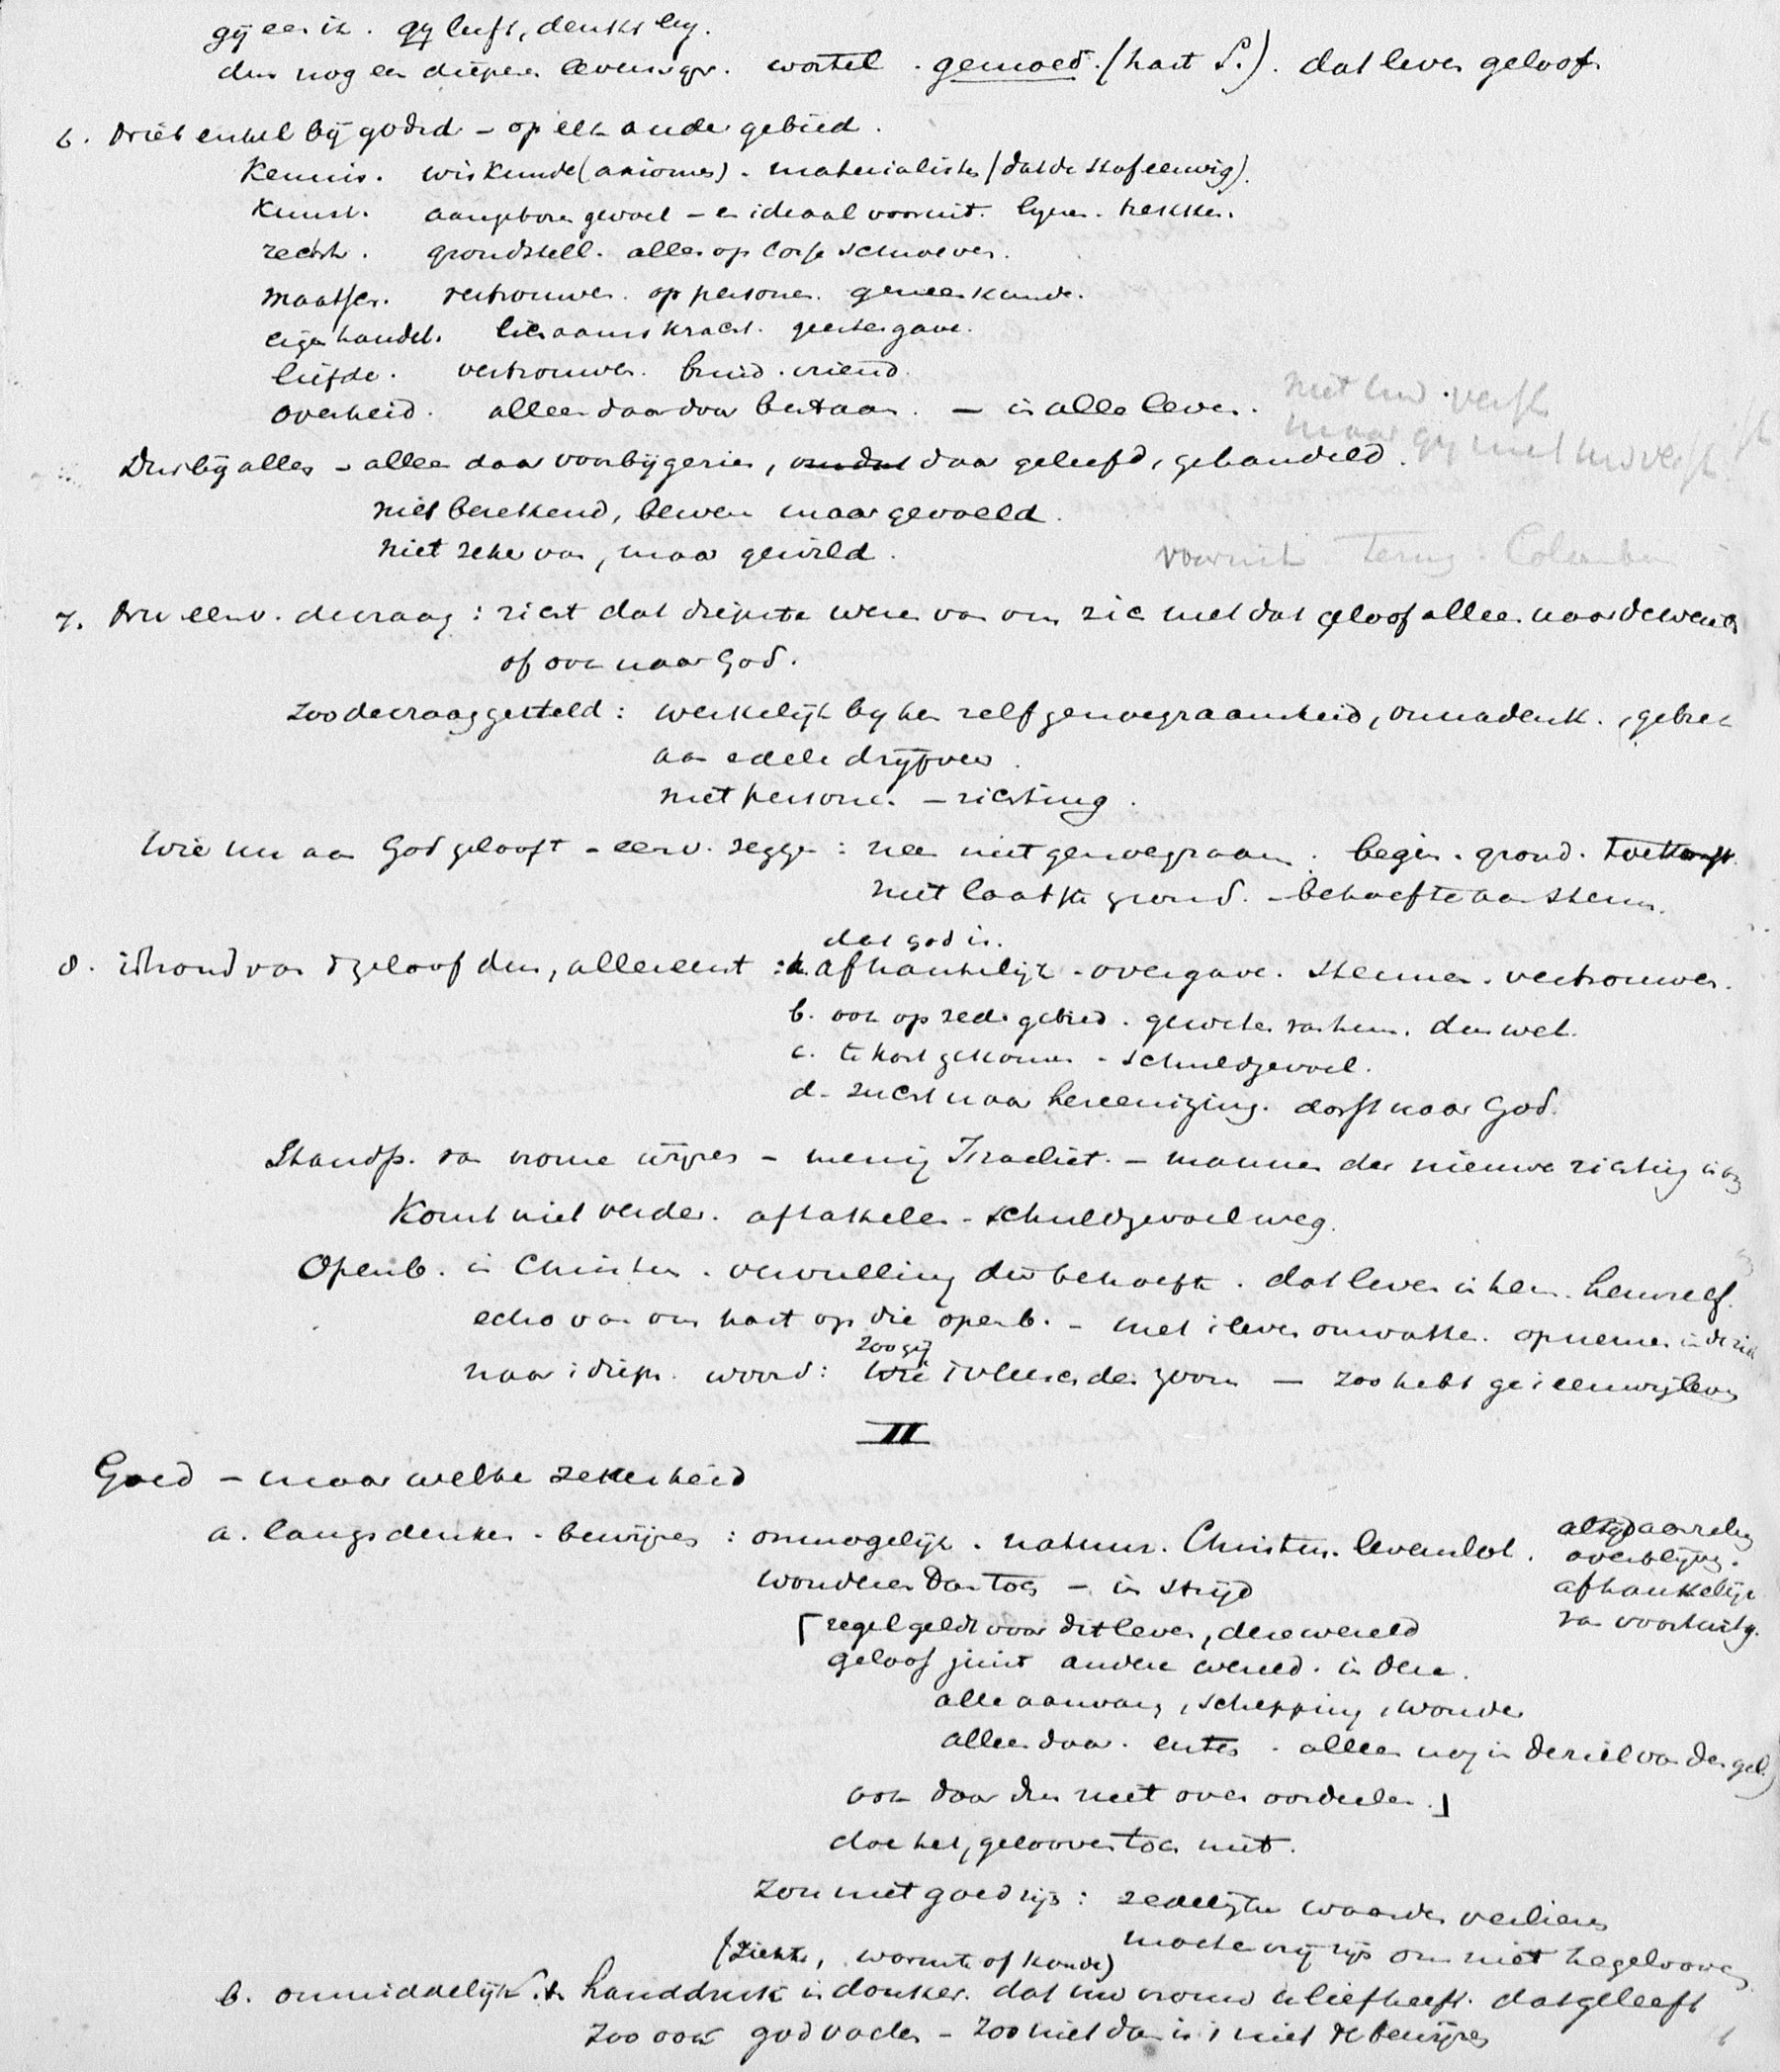 gij een ik. gij leeft, denkt leg.
dus nog een dieper levensgr. wortel. gemoed. (hart S.). dat leven geloof.
6. Niet enkel bij godsd. - op elk ander gebied.
Kennis. wiskunde (axiomes) - materialisten (dat de stof eeuwig).
Kunst. aangeboren gevoel - en ideaal vooruit. lijnen. trekken.
recht. grondstell. alles op losse schroeven.
maatsch. vertrouwen. op personen. geneeskunde.
eigen handel. lichaamskracht. geestesgave.
liefde. vertrouwen. bruid. vriend.
overheid. alleen daardoor bestaan. - in alle leven.
niet
maar gij niet
Dus bij alles - alleen daar voorbijgezien, omdat daar geleefd, gehandeld.
niet berekend, bewezen maar gevoeld.
niet zeker van, maar gewild.
vooruit. Terug. Columbus
7. Nu eenv. de vraag: richt dat diepste wezen van ons zich met dat geloof alleen naar de wereld
of ook naar God.
Zoo de vraag gesteld: werkelijk bij hen zelfgenoegzaamheid, onnadenk., gebrek
aan edele drijfveer.
niet personen. - richting.
Wie nu aan God gelooft - eenv. zeggen: neen niet genoegzaam. begin. grond. toekomst.
niet laatste grond. - behoefte aan steun.
dat God is.
8. inhoud van 't geloof dus, allereerst: a. afhankelijk - overgave. steunen. vertrouwen.
b. ook op zed. gebied. geweten van hem. den wet.
c. te kort gekomen - schuldgevoel.
d. zucht naar hereeniging. dorst naar God.
Standp. van vrome wijzen - menig Israeliet. - mannen der nieuwe richting
Komt niet verder. aftakelen - schuldgevoel weg.
Openb. in Christus. vervulling dier behoefte. dat leven in hem. hemzelf.
echo van ons hart op die openb. - met i leven omvatten. opnemen in de ziel
zoo gij
naar i diepz. woord: wie i vleesch des zoons - zoo hebt ge i eeuwig leven
II
Goed - maar welke zekerheid
a. langs denken - bewijzen: onmogelijk. natuur. Christus. levenslot.
altijd aarzeling
overblijvig.
afhankelijk
van vooruitg.
wonderen dan toch - in strijd
[regel geldt voor dit leven, deze wereld
geloof juist andere wereld. in deze.
alle aanvang, schepping, wonder
alleen daar. enten. alleen nog in de ziel van den gel.)
ook daar dus niet over oordeelen.]
doe het, gelooven toch niet.
Zou niet goed zijn: zedelijke waarde verliezen
moeten vrij zijn om niet te gelooven
(ziekte, warmte of koude)
b. onmiddelijk. handdruk in donker. dat uw vrouw u liefheeft. dat ge leeft
Zoo ook god vader - zoo niet dan is i niet te bewijzen